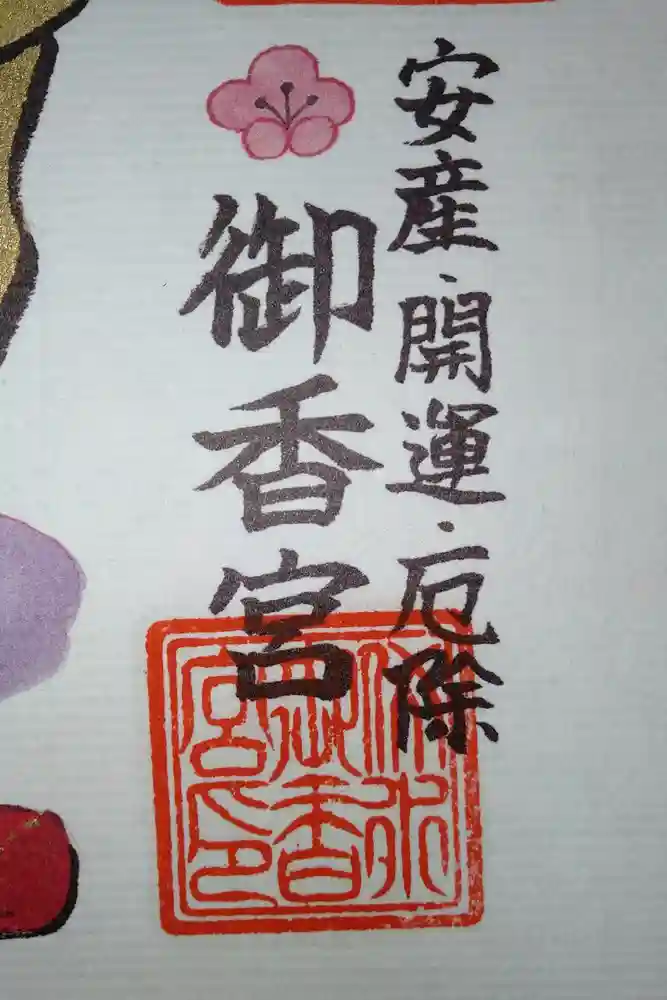 安産・開運・厄除
御香宮
伏水
御香
宮印